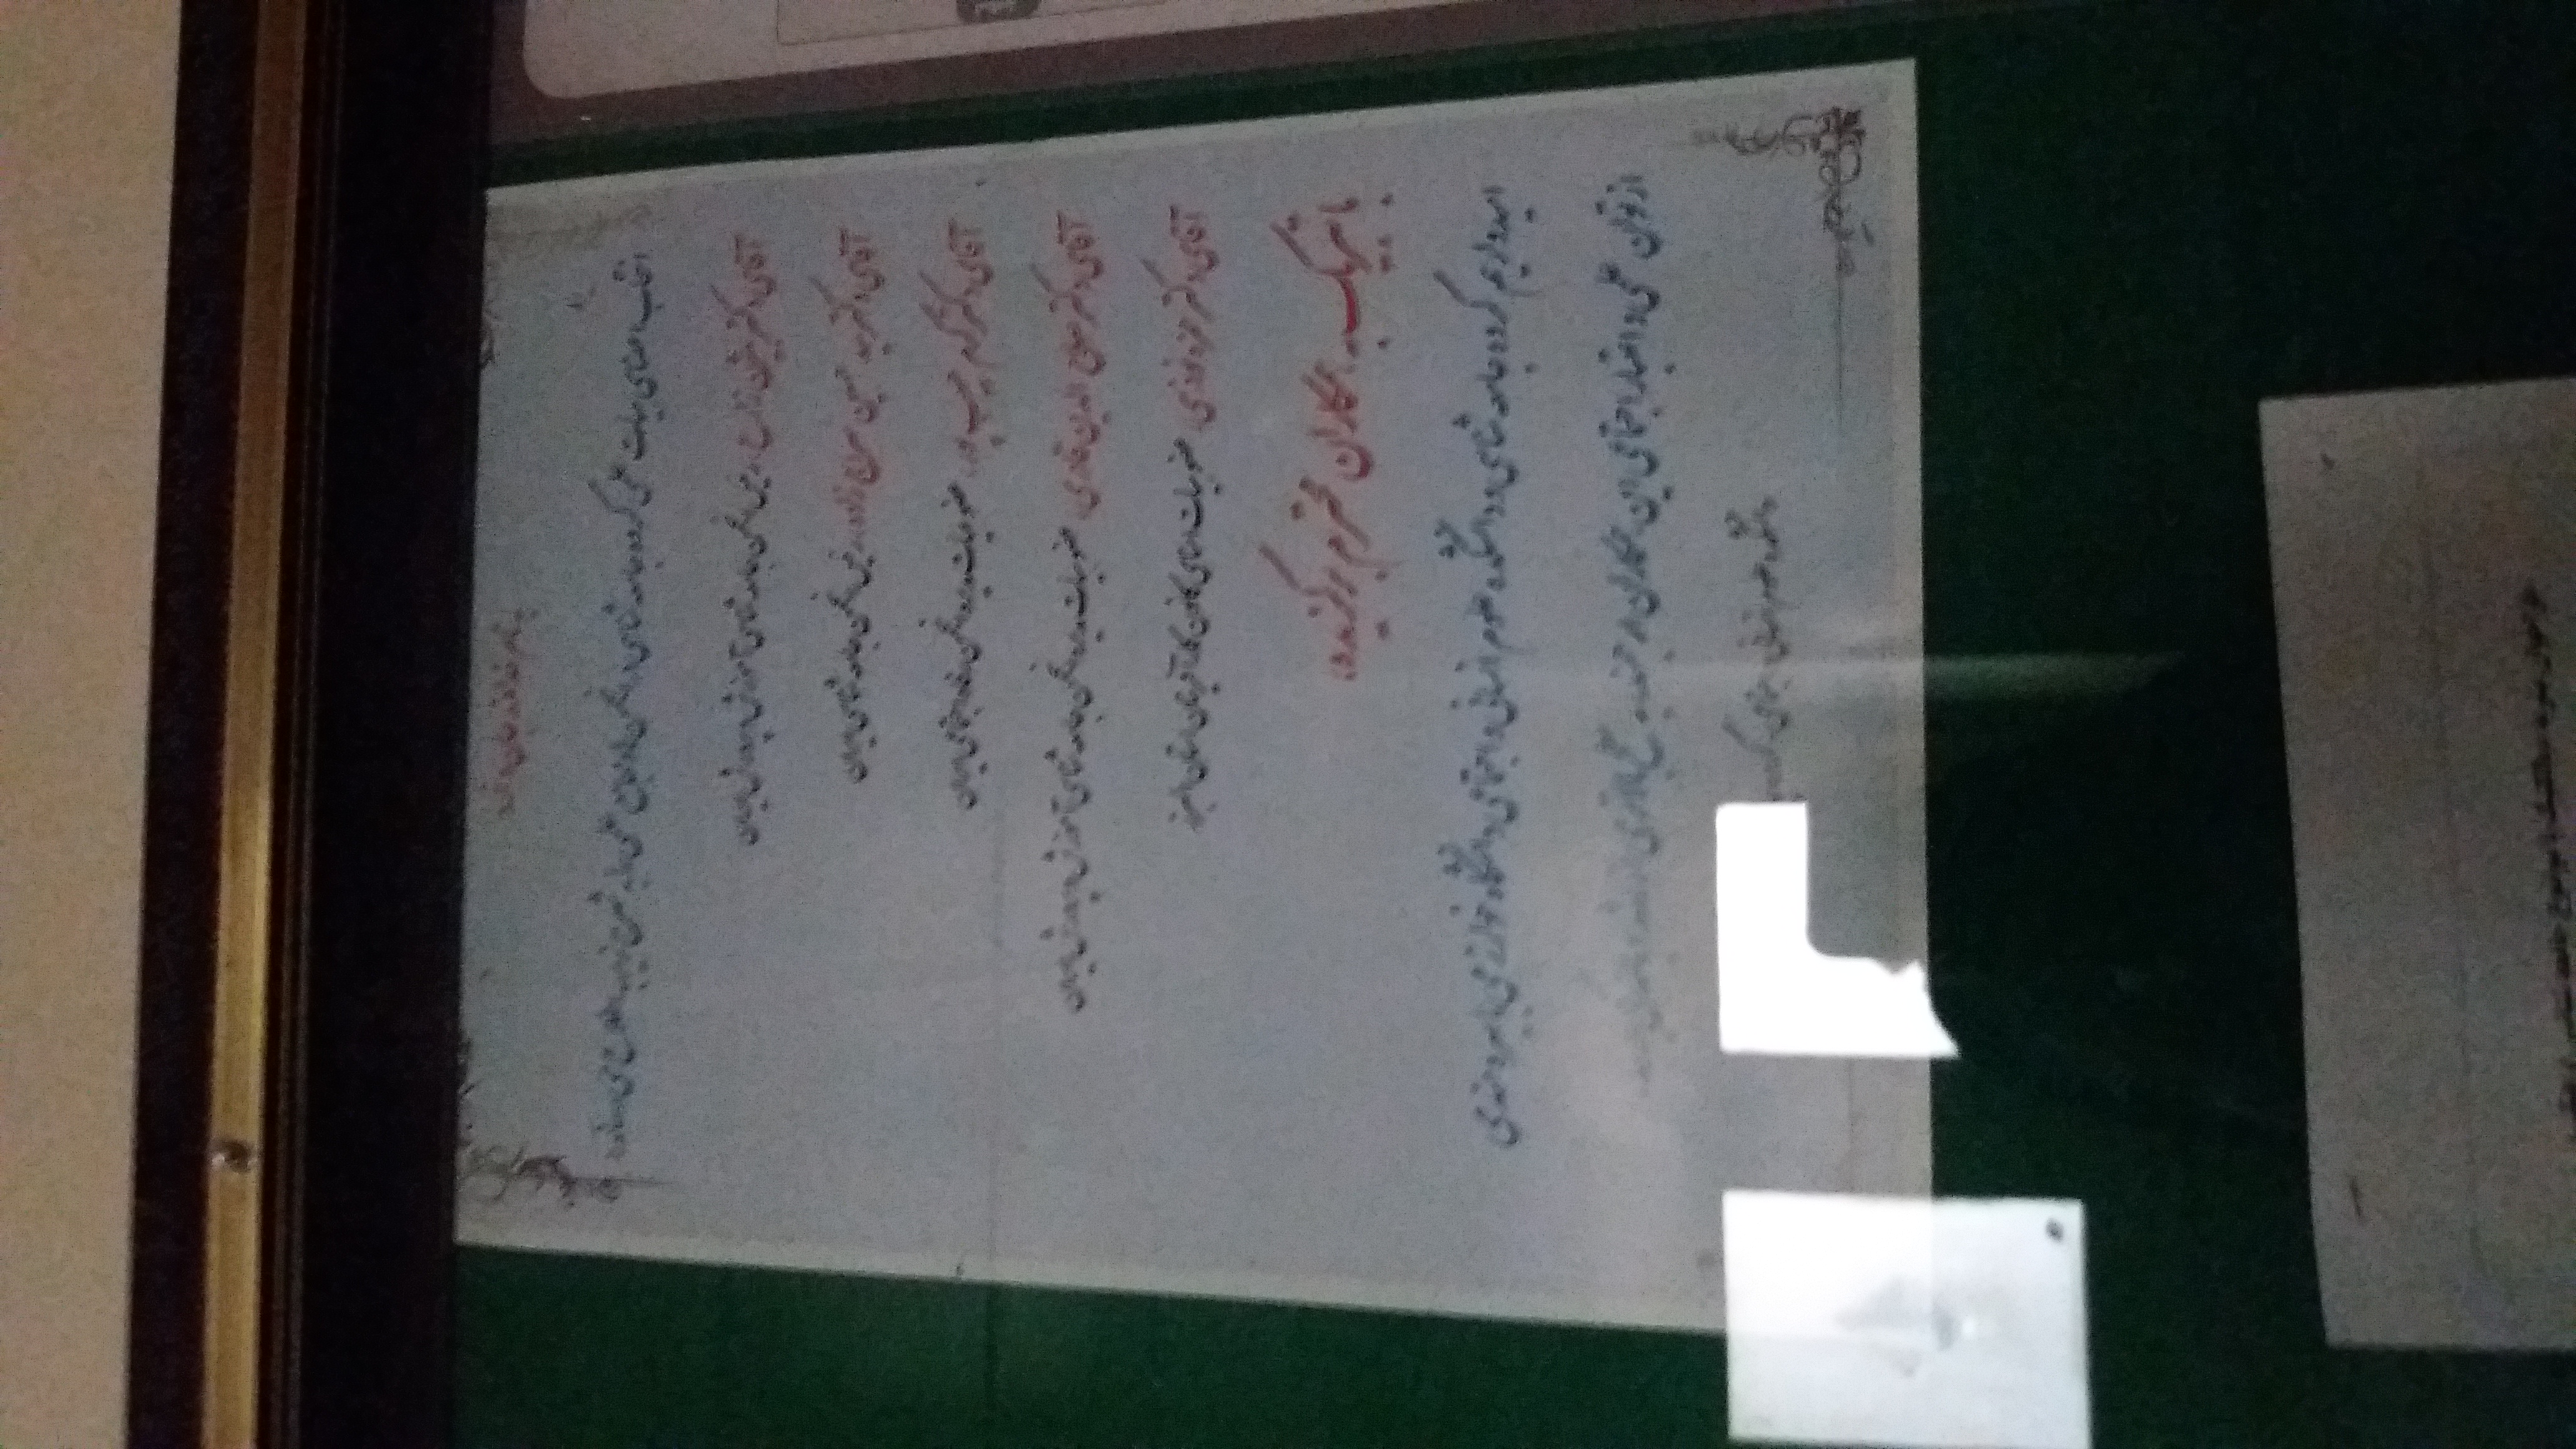 به نام خداوند جان و خرد
انتخاب اعضای هیات علمی گروه جامعه شناسی در انجمن ها و مجامع علمی را به شرح زیر به اطلاع می رساند:
آقای دکتر بیژن زارع، رئیس انجمن جامعه شناسی آموزش و پرورش ایران
آقای دکتر سید حسین سراج زاده، رئیس انجمن جامعه شناسی ایران
آقای دکتر کرم حبیب پور، عضو هیات مدیره انجمن رفاه اجتماعی ایران
آقای دکتر صلاح الدین قادری، عضو هیات مدیره انجمن جامعه شناسی آموزش و پرورش ایران
آقای دکتر حمزه نوذری، عضو هیات امنای کانون کارآفرینان استان البرز
با تبریک به همکاران محترم برگزیده،
امیدواریم گروه جامعه شناسی و دانشکده علوم انسانی و اجتماعی دانشگاه خوارزمی با بهره مندی
از توان علمی و اعتبار اجتماعی این همکاران ارجمند، به سطح بالاتری از رشد و
دانشکده علوم انسانی و اجتماعی، گروه